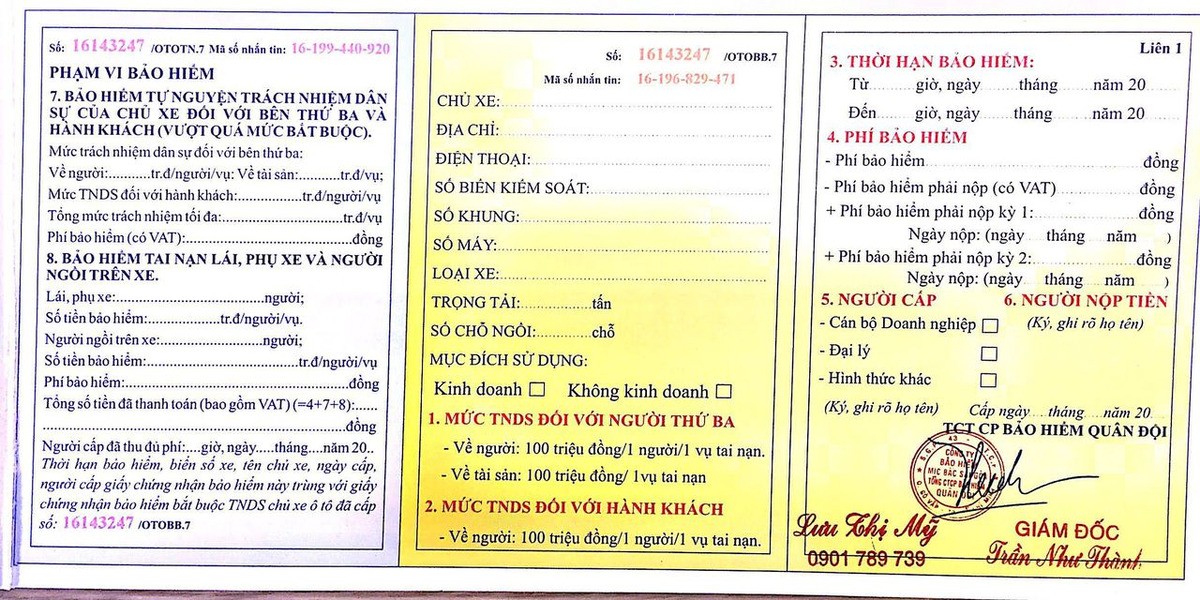 Số: 16143247 /OTOTN.7 Mã số nhắn tin: 16-199-440-920
PHẠM VI BẢO HIỂM
7. BẢO HIỂM TỰ NGUYỆN TRÁCH NHIỆM DÂN
SỰ CỦA CHỦ XE ĐỐI VỚI BÊN THỨ BA VÀ
HÀNH KHÁCH (VƯỢT QUÁ MỨC BẮT BUỘC).
Mức trách nhiệm dân sự đối với bên thứ ba:
Về người:..........tr.đ/người/vụ: Về tài sản:..........tr.đ/vụ;
Mức TNDS đối với hành khách:.............tr.đ/người/vụ
Tổng mức trách nhiệm tối đa:........................tr.đ/vụ
Phí bảo hiểm (có VAT):.................................đồng
8. BẢO HIỂM TAI NẠN LÁI, PHỤ XE VÀ NGƯỜI
NGỒI TRÊN XE.
Lái, phụ xe:..............................người;
Số tiền bảo hiểm:..............tr.đ/người/vụ.
Người ngồi trên xe:.....................người;
Số tiền bảo hiểm:..............................tr.đ/người/vụ
Phí bảo hiểm:.............................................đồng
Tổng số tiền đã thanh toán (bao gồm VAT) (=4+7+8):......
.............................................................đồng
Người cấp đã thu đủ phí:....giờ, ngày.....tháng....năm 20..
Thời hạn bảo hiểm, biển số xe, tên chủ xe, ngày cấp,
người cấp giấy chứng nhận bảo hiểm này trùng với giấy
chứng nhận bảo hiểm bắt buộc TNDS chủ xe ô tô đã cấp
số: 16143247 /OTOBB.7
Số: 16143247 /OTOBB.7
Mã số nhắn tin: 16-196-829-471
CHỦ XE:
ĐỊA CHỈ:
ĐIỆN THOẠI:
SỐ BIỂN KIỂM SOÁT:
SỐ KHUNG:
SỐ MÁY:
LOẠI XE:
TRỌNG TẢI: tấn
SỐ CHỖ NGỒI: chỗ
MỤC ĐÍCH SỬ DỤNG:
Kinh doanh ☐ Không kinh doanh ☐
1. MỨC TNDS ĐỐI VỚI NGƯỜI THỨ BA
- Về người: 100 triệu đồng/1 người/1 vụ tai nạn.
- Về tài sản: 100 triệu đồng/ 1vụ tai nạn
2. MỨC TNDS ĐỐI VỚI HÀNH KHÁCH
- Về người: 100 triệu đồng/1 người/1 vụ tai nạn.
Liên 1
3. THỜI HẠN BẢO HIỂM:
Từ giờ, ngày tháng năm 20
Đến giờ, ngày tháng năm 20
4. PHÍ BẢO HIỂM
- Phí bảo hiểm đồng
- Phí bảo hiểm phải nộp (có VAT) đồng
+ Phí bảo hiểm phải nộp kỳ 1: đồng
Ngày nộp: (ngày tháng năm )
+ Phí bảo hiểm phải nộp kỳ 2: đồng
Ngày nộp: (ngày tháng năm )
5. NGƯỜI CẤP 6. NGƯỜI NỘP TIỀN
- Cán bộ Doanh nghiệp ☐ (Ký, ghi rõ họ tên)
- Đại lý ☐
- Hình thức khác ☐
(Ký, ghi rõ họ tên) Cấp ngày tháng năm 20
TCT CP BẢO HIỂM QUÂN ĐỘI
CÔNG TY
BẢO HIỂM
MIC BẮC SÀI GÒN
TỔNG CTCP BẢO HIỂM
QUÂN ĐỘI
Lưu Thị Mỹ
0901 789 739
GIÁM ĐỐC
Trần Như Thành